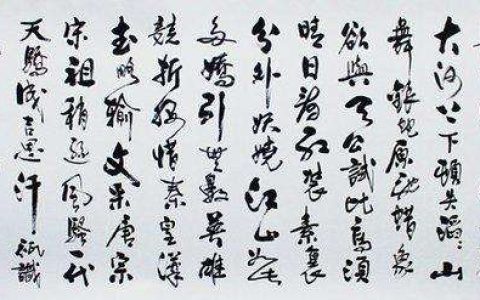 大河上下頓失滔〻山
舞銀蛇原馳蠟象
欲與天公試比高須
晴日看紅裝素裹
分外妖嬈江山如此
多嬌引無數英雄
競折腰惜秦皇漢
武略輸文采唐宗
宋祖稍遜風騷一代
天驕成吉思汗祇識